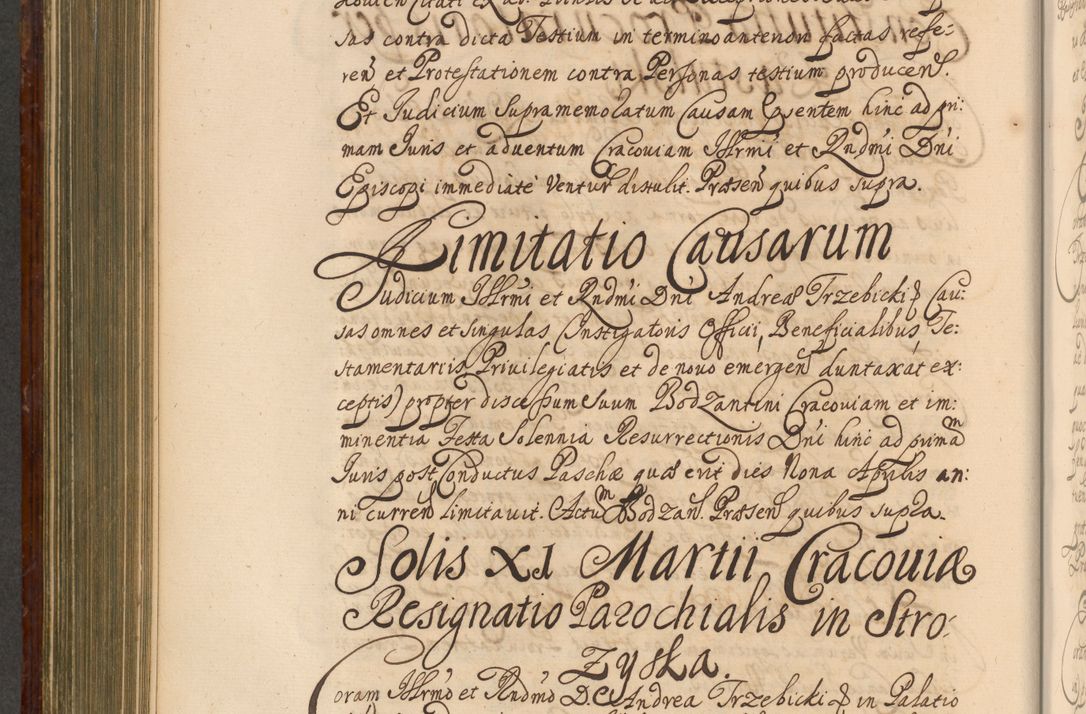 sas contra dicta Testium in termino anteriori factas refe:
ren̄ et Protestationem contra Personas testium producen̄.
Et Judicium Supramemoratum Causam p̄sentem hinc ad pri:
mam Juris et adventum Cracoviam Illrm̄i et Rndm̄i Dn̄i
Episcopi immediatè ventur̄ distulit. Præsen̄ quibus supra.
Limitatio Causarum
Judicium Illrm̄i et Rndm̄i Dn̄i Andreæ Trzebicki Cau:
sas omnes et singulas (Instigatoris Officii, Beneficialibus, Te:
stamentariis, Privilegiatis et de novo emergen̄ duntaxat ex:
ceptis) propter discessum suum Bodzantini Cracoviam et im:
minentia Festa Solennia Resurrectionis Dn̄i hinc ad primam
Juris post Conductus Paschæ quæ erit dies Nona Aprilis an:
ni curren̄ limitavit. Actum Bodzan̄. Præsen̄ quibus supra.
Solis XI Martii Cracoviæ
Resignatio Parochialis in Stro:
zyska.
Coram Illrm̄o et Rndm̄o D. Andrea Trzebicki in Palatio